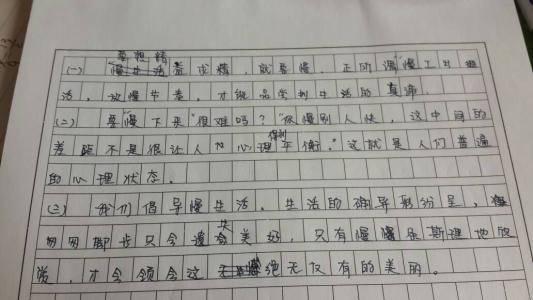 要想精
(一) 慢生活，就要慢，正所谓慢工出细
活，放慢节奏，才能品尝到生活的真谛。
(二) 要慢下来“很难吗？”“你慢别人快，这中间的
差距不是很让人心理得到平衡。”这就是人们普遍
的心理状态。
(三) 我们倡导慢生活。生活的确异彩纷呈，
匆匆脚步只会遗失美好，只有慢慢品斯理地
，才会领会这绝无仅有的美的。